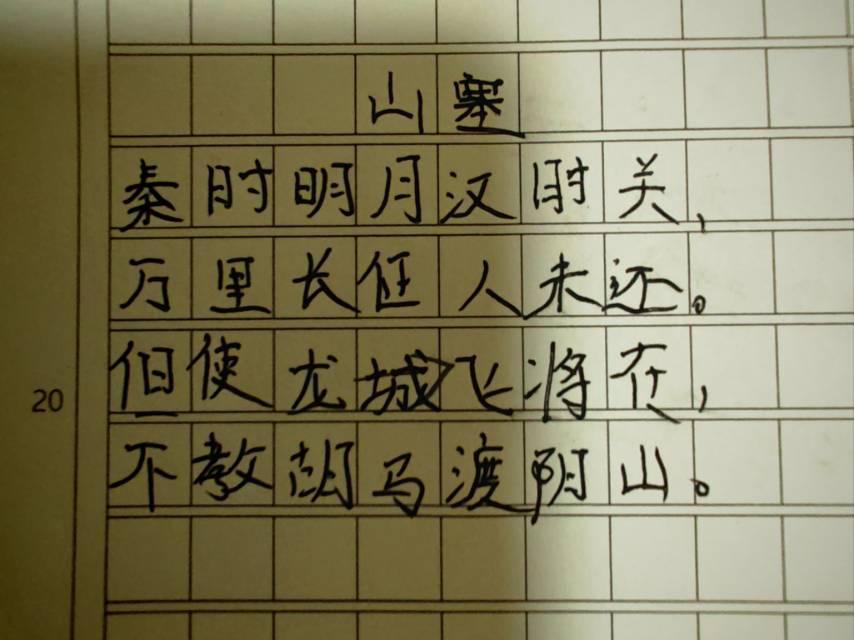 山塞
秦时明月汉时关,
万里长征人未还。
但使龙城飞将在,
不教胡马渡阴山。
20